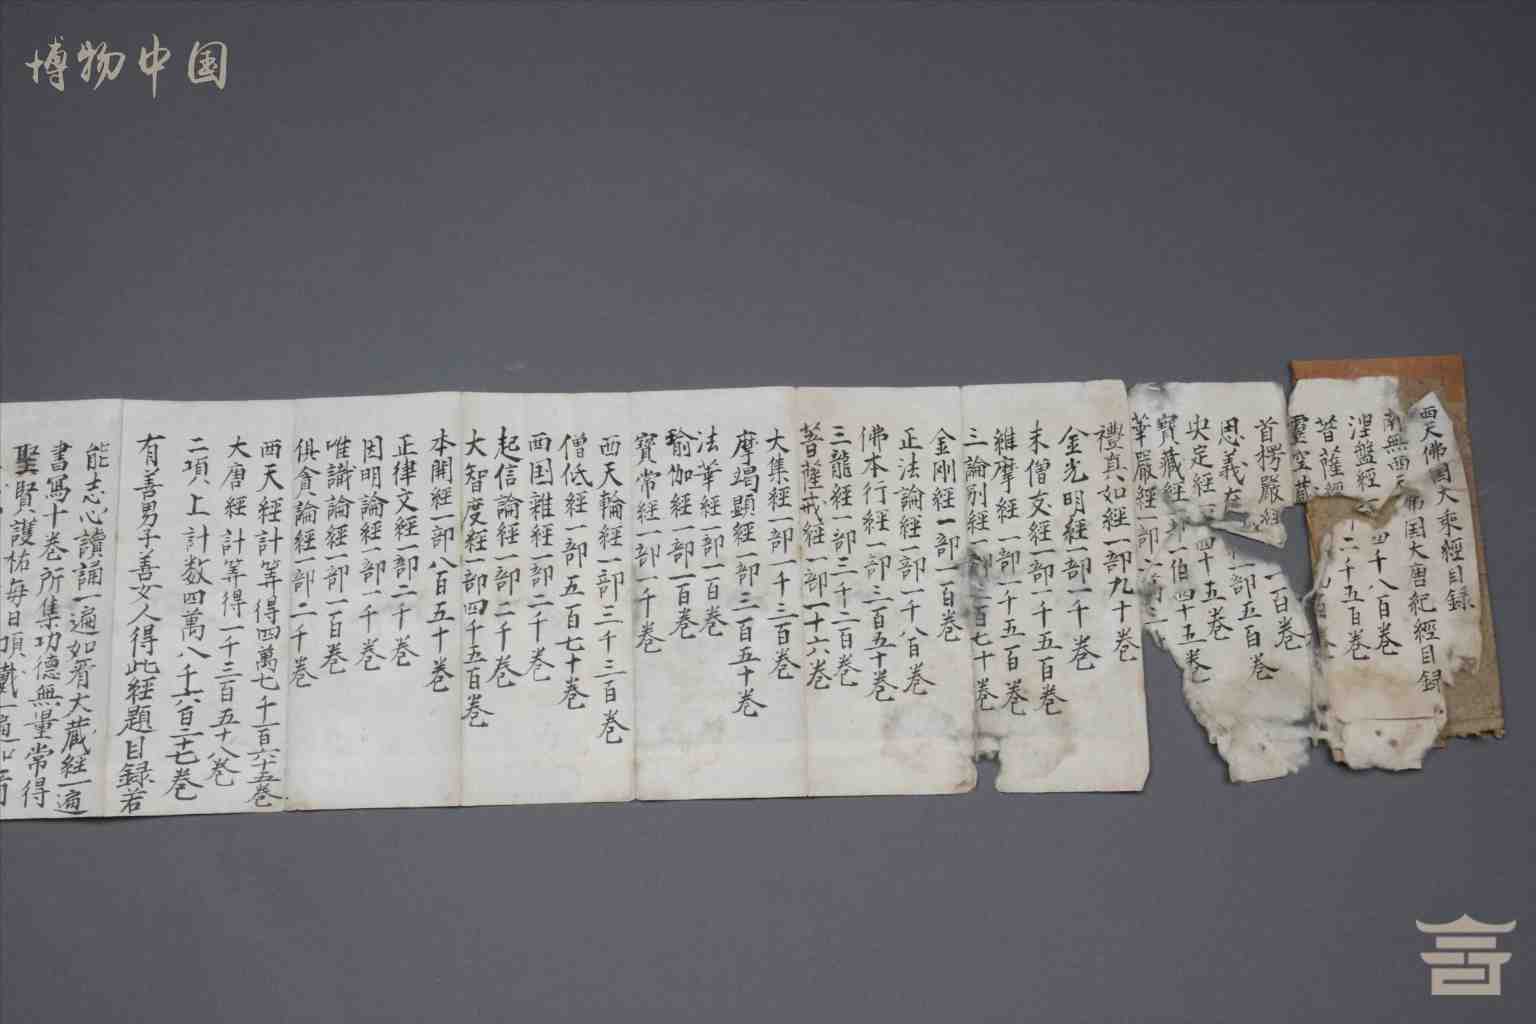 博物中国
西天佛国大乘經目録
南無西天佛国大唐紀經目録
涅盤經一 四千八百巻
菩薩經 千二千五百巻
靈空藏
首楞嚴經 一百巻
思義在 一部五百巻
央定經 四十五巻
寳藏經一部一伯四十五巻
華嚴經一部
禮真如經一部九十巻
金光明經一部一千巻
未僧支經一部一千五百巻
維摩經一部一千五百巻
三論别經一部三百七十巻
金剛經一部一百巻
正法論經一部一千八百巻
佛本行經一部三百五十巻
三龍經一部三千二百巻
菩薩戒經一部一十六巻
大集經一部一千三百巻
摩竭顯經一部三百五十巻
法華經一部一百巻
瑜伽經一部一百巻
寳常經一部一千巻
西天輪經一部三千三百巻
僧低經一部五百七十巻
西国雜經一部二千巻
起信論經一部二千巻
大智度經一部四千五百巻
本開經一部八百五十巻
正律文經一部二千巻
因明論經一部一千巻
唯識論經一部一百巻
俱貪論經一部二千巻
西天經計等得四萬七千一百六十五巻
大唐經計等得一千三百五十八巻
二項上計数四萬八千六百三十七巻
有善男子善女人得此經題目録若
能志心讀誦一遍如看大藏經一遍
書寫十巻所集功德無量常得
聖賢護祐每日頂戴一遍如看